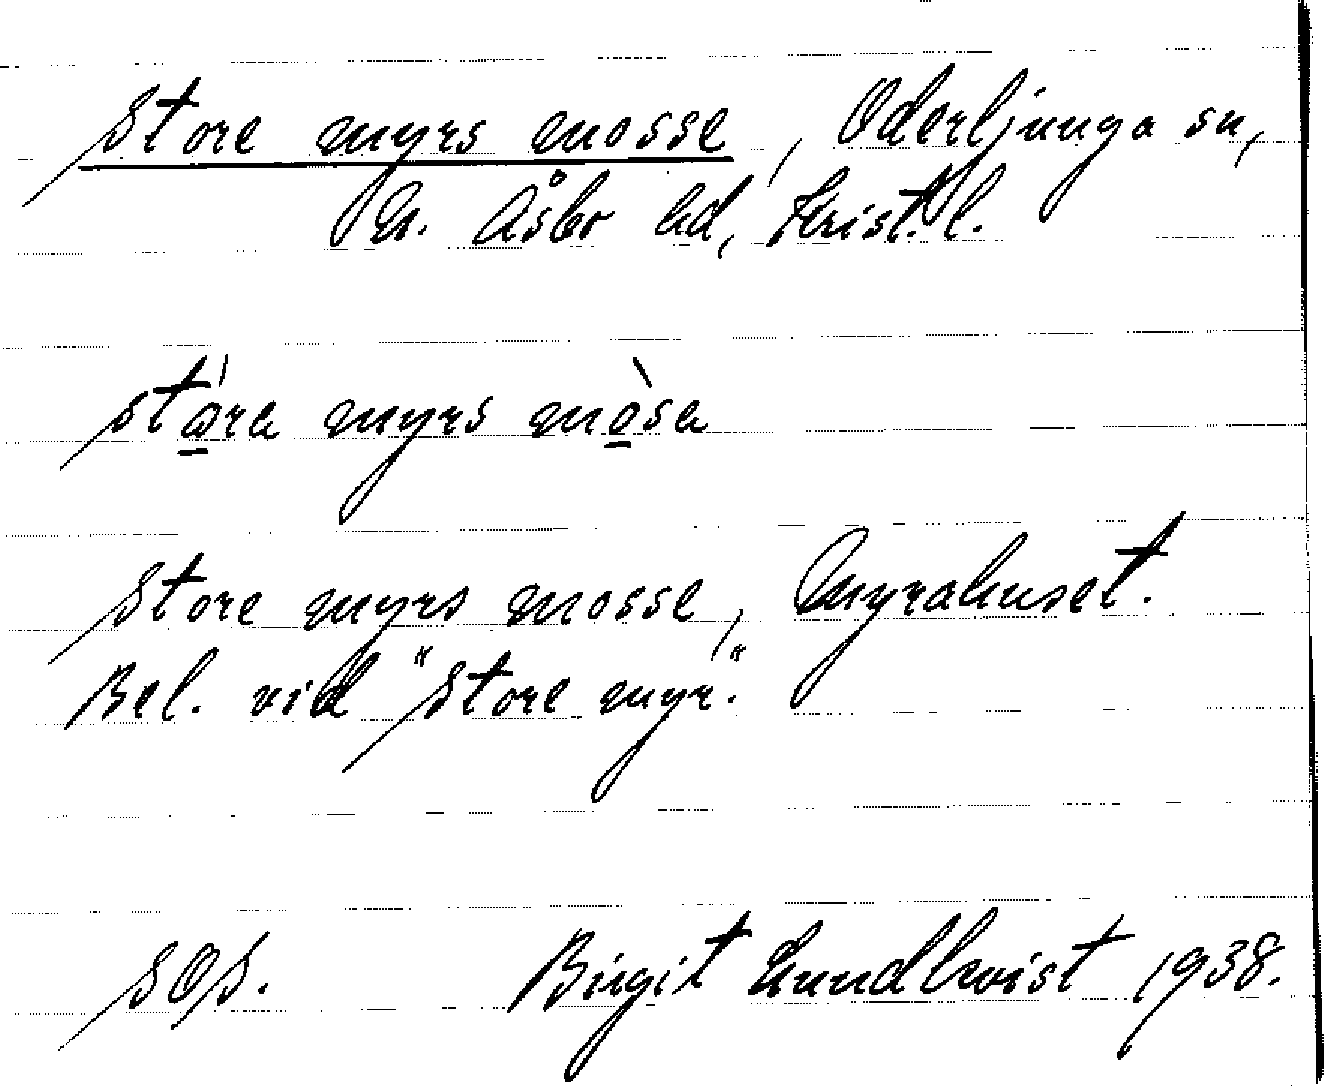 Store myrs mosse, Oderljunga sn,
N. Åsbo hd, Krist. l.
stóra myrs mòsa
Store myrs mosse, Myrahuset.
Bel. vid "Store myr."
SOS. Birgit Lundkvist 1938.